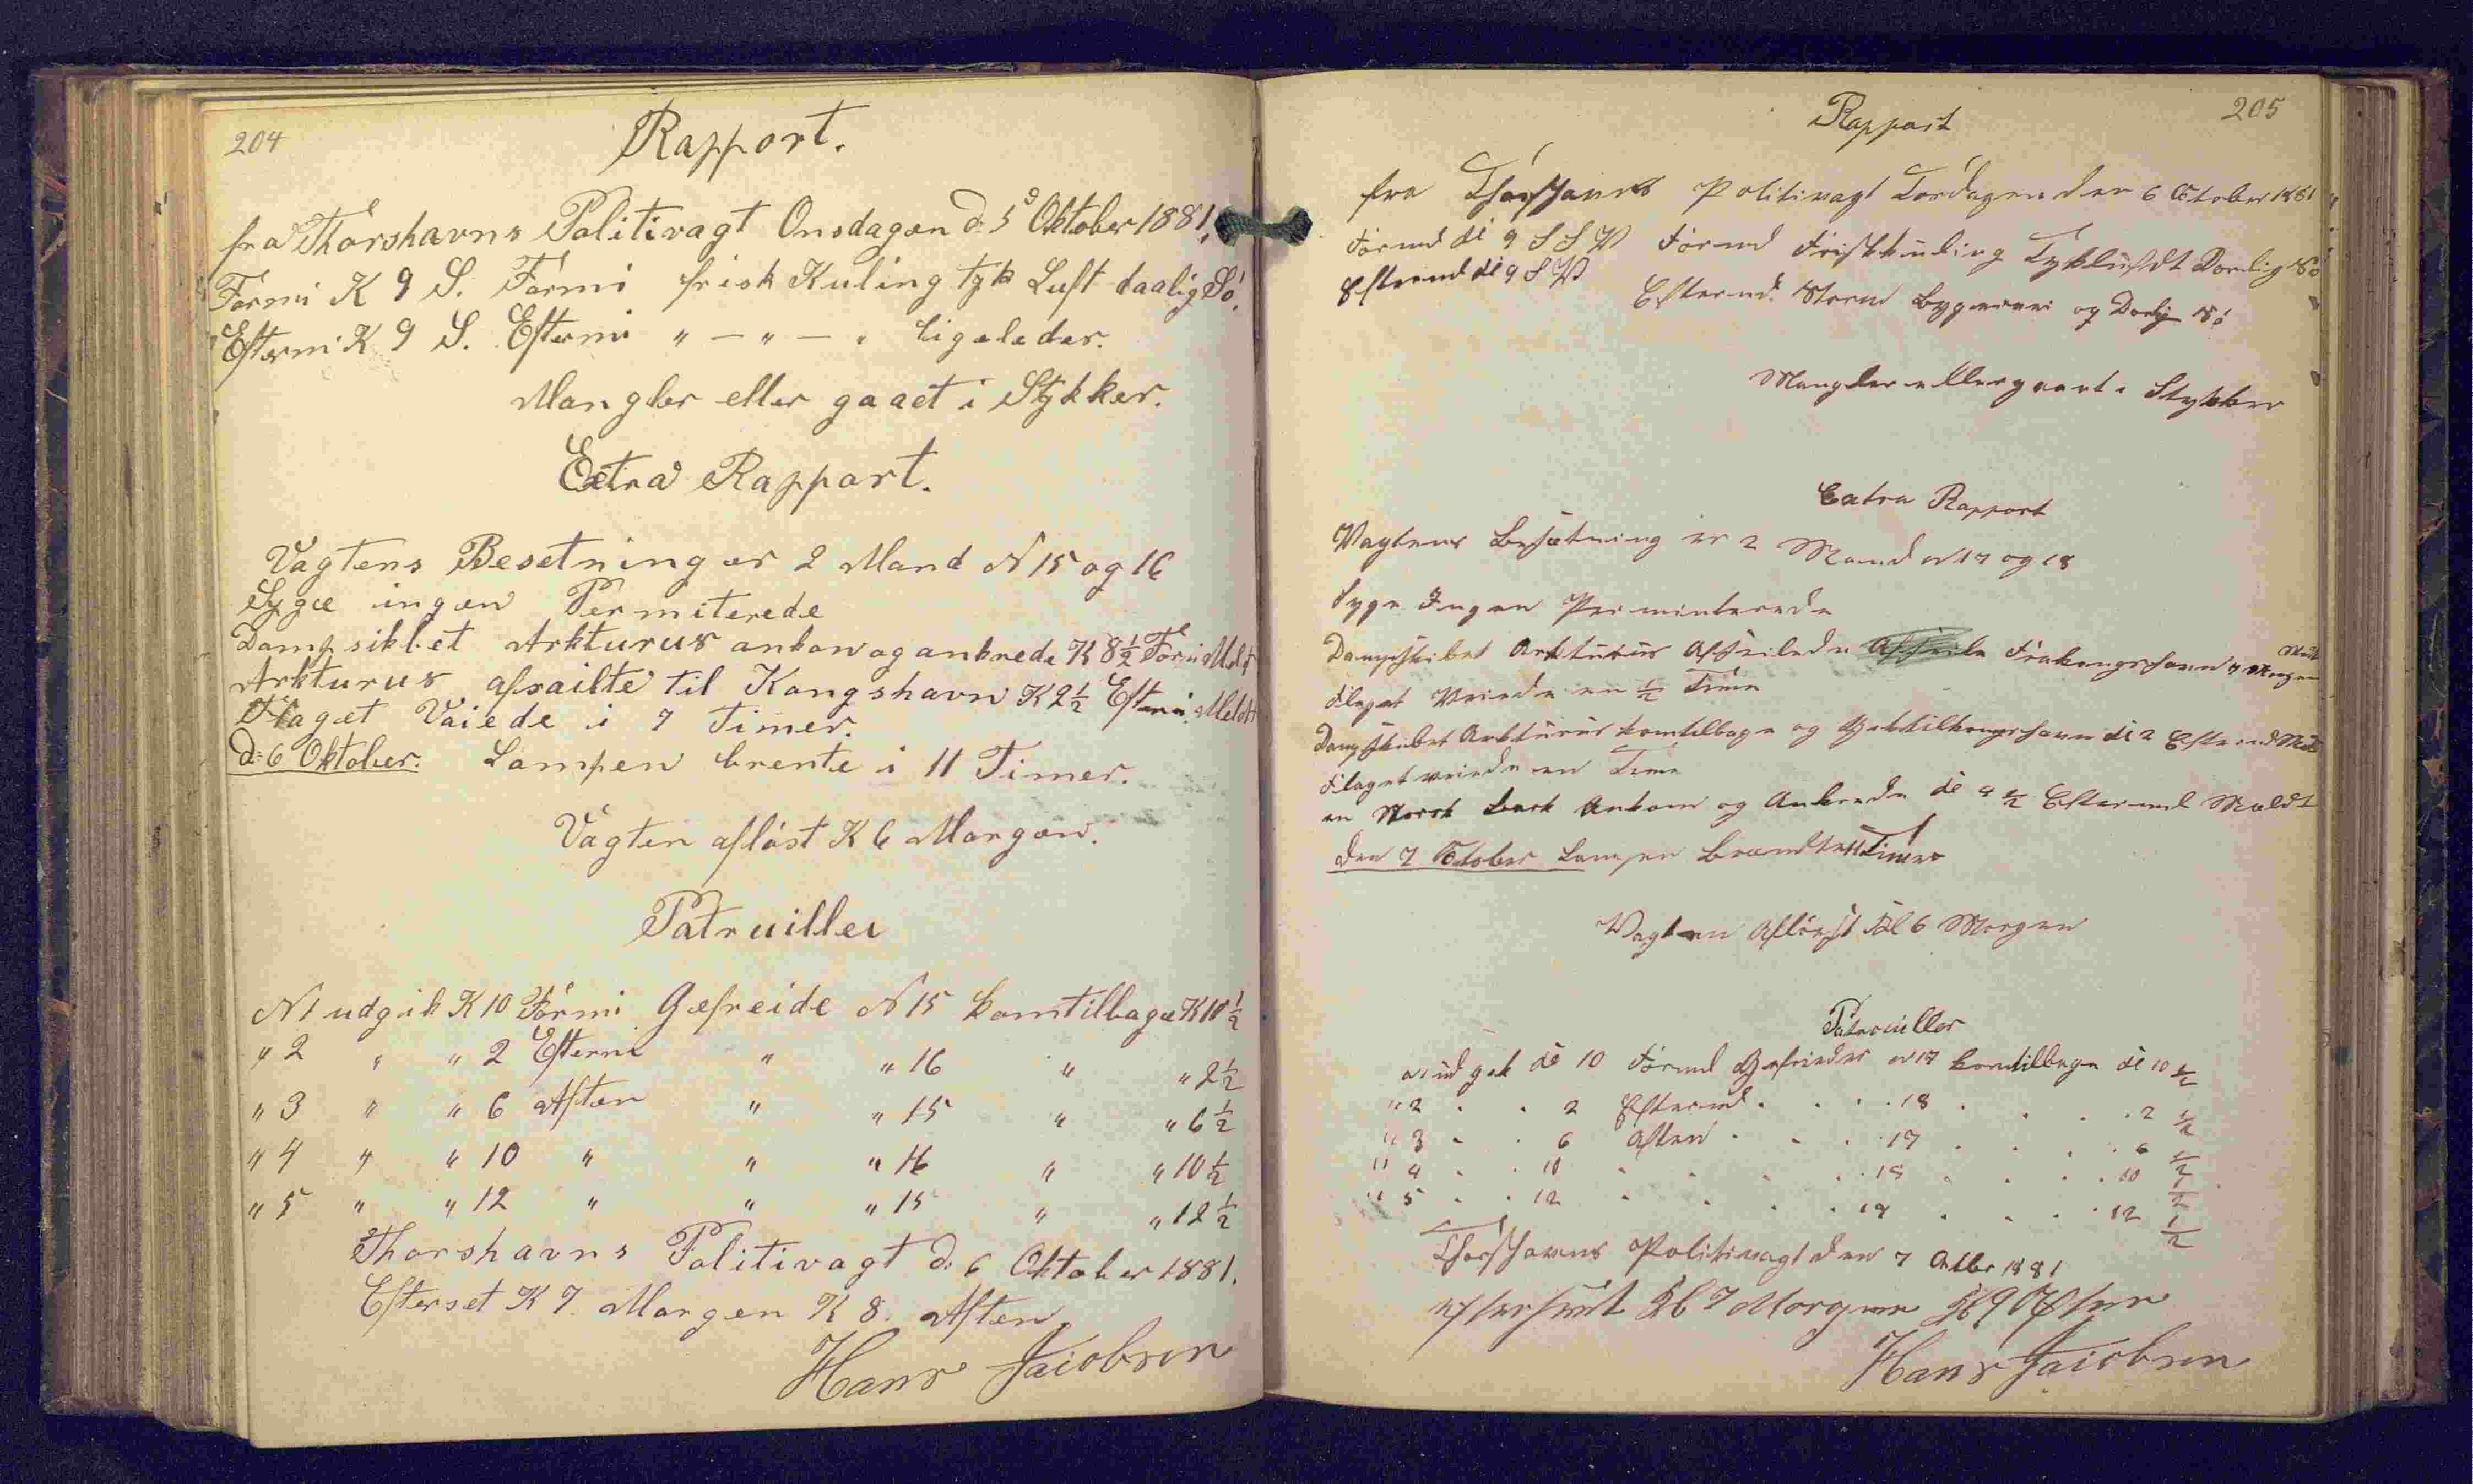 204
Rapport.
fra Thorshavns Politivagt Onsdagen d. 5 Oktober 1881.
Formi K 9 S. Formi frisk Kuling tyk Luft daalig Sö.
Eftermi K 9 S. Eftermi " — " — " ligeledes.
Mangler eller gaaet i Stykker.
Extra Rapport.
Vagtens Besetning er 2 Mand N 15 og 16
Syge ingen Permiterede
Dampsikbet Arkturus ankom og ankrede K 8 1/2 Formi Meldt
Arkturus afsailte til Kongshavn K 2 1/2 Eftermi Meldt
Flaget Vaiede i 7 Timer.
d: 6 Oktober. Lampen brente i 11 Timer.
Vagten aflöst K 6 Morgen.
Patruiller
N 1 udgik K 10 Formi Gefreide N 15 kom tilbage K 10 1/2
" 2 " " 2 Eftermi " " 16 " " 2 1/2
" 3 " " 6 Aften " " 15 " " 6 1/2
" 4 " " 10 " " " 16 " " 10 1/2
" 5 " " 12 " " " 15 " " 12 1/2
Thorshavns Politivagt d. 6 Oktober 1881.
Efterset K 7. Morgen K 8. Aften
Hans Jacobsen
205
Rapport
fra Thorshavns Politivagt Torsdagen den 6 Oktober 1881
Formd Kl 9 S S V Formd Friskkuling Tykluft Daarlig Sö
Eftermd Kl 9 S V Eftermd. Storm og Sö
Mangler eller gaaet i Stykker
Extra Rapport
Vagtens Besætning er 2 Mand N 17 og 18
Syge Ingen
Dampskibet Arkturus Afseilede
Flaget Veiede en 1/2 Time
Dampskibet Arkturus kom tilbage og Gik til Kongshavn Kl 2 Eftermd
Flaget veiede en Time
en Norsk Bark Ankom og Ankrede Kl 4 1/2 Eftermd Meldt
Den 7 Oktober Lampen Brændte 11 Timer
Vagten Aflöst Kl 6 Morgen
Patrouiller
N 1 udgik Kl 10 Formd Gefreider N 17 kom tilbage Kl 10 1/2
" 2 . . 2 Eftermd . . . 18 . . . 2 1/2
" 3 . . 6 Aften . . . 17 . . . 6 1/2
" 4 . . 10 . . . . 18 . . . 10 1/2
" 5 . . 12 . . . . 17 . . . 12 1/2
Thorshavns Politivagt den 7 Octbr 1881
Kl 7 Morgen Kl 9 Aften
Hans Jacobsen